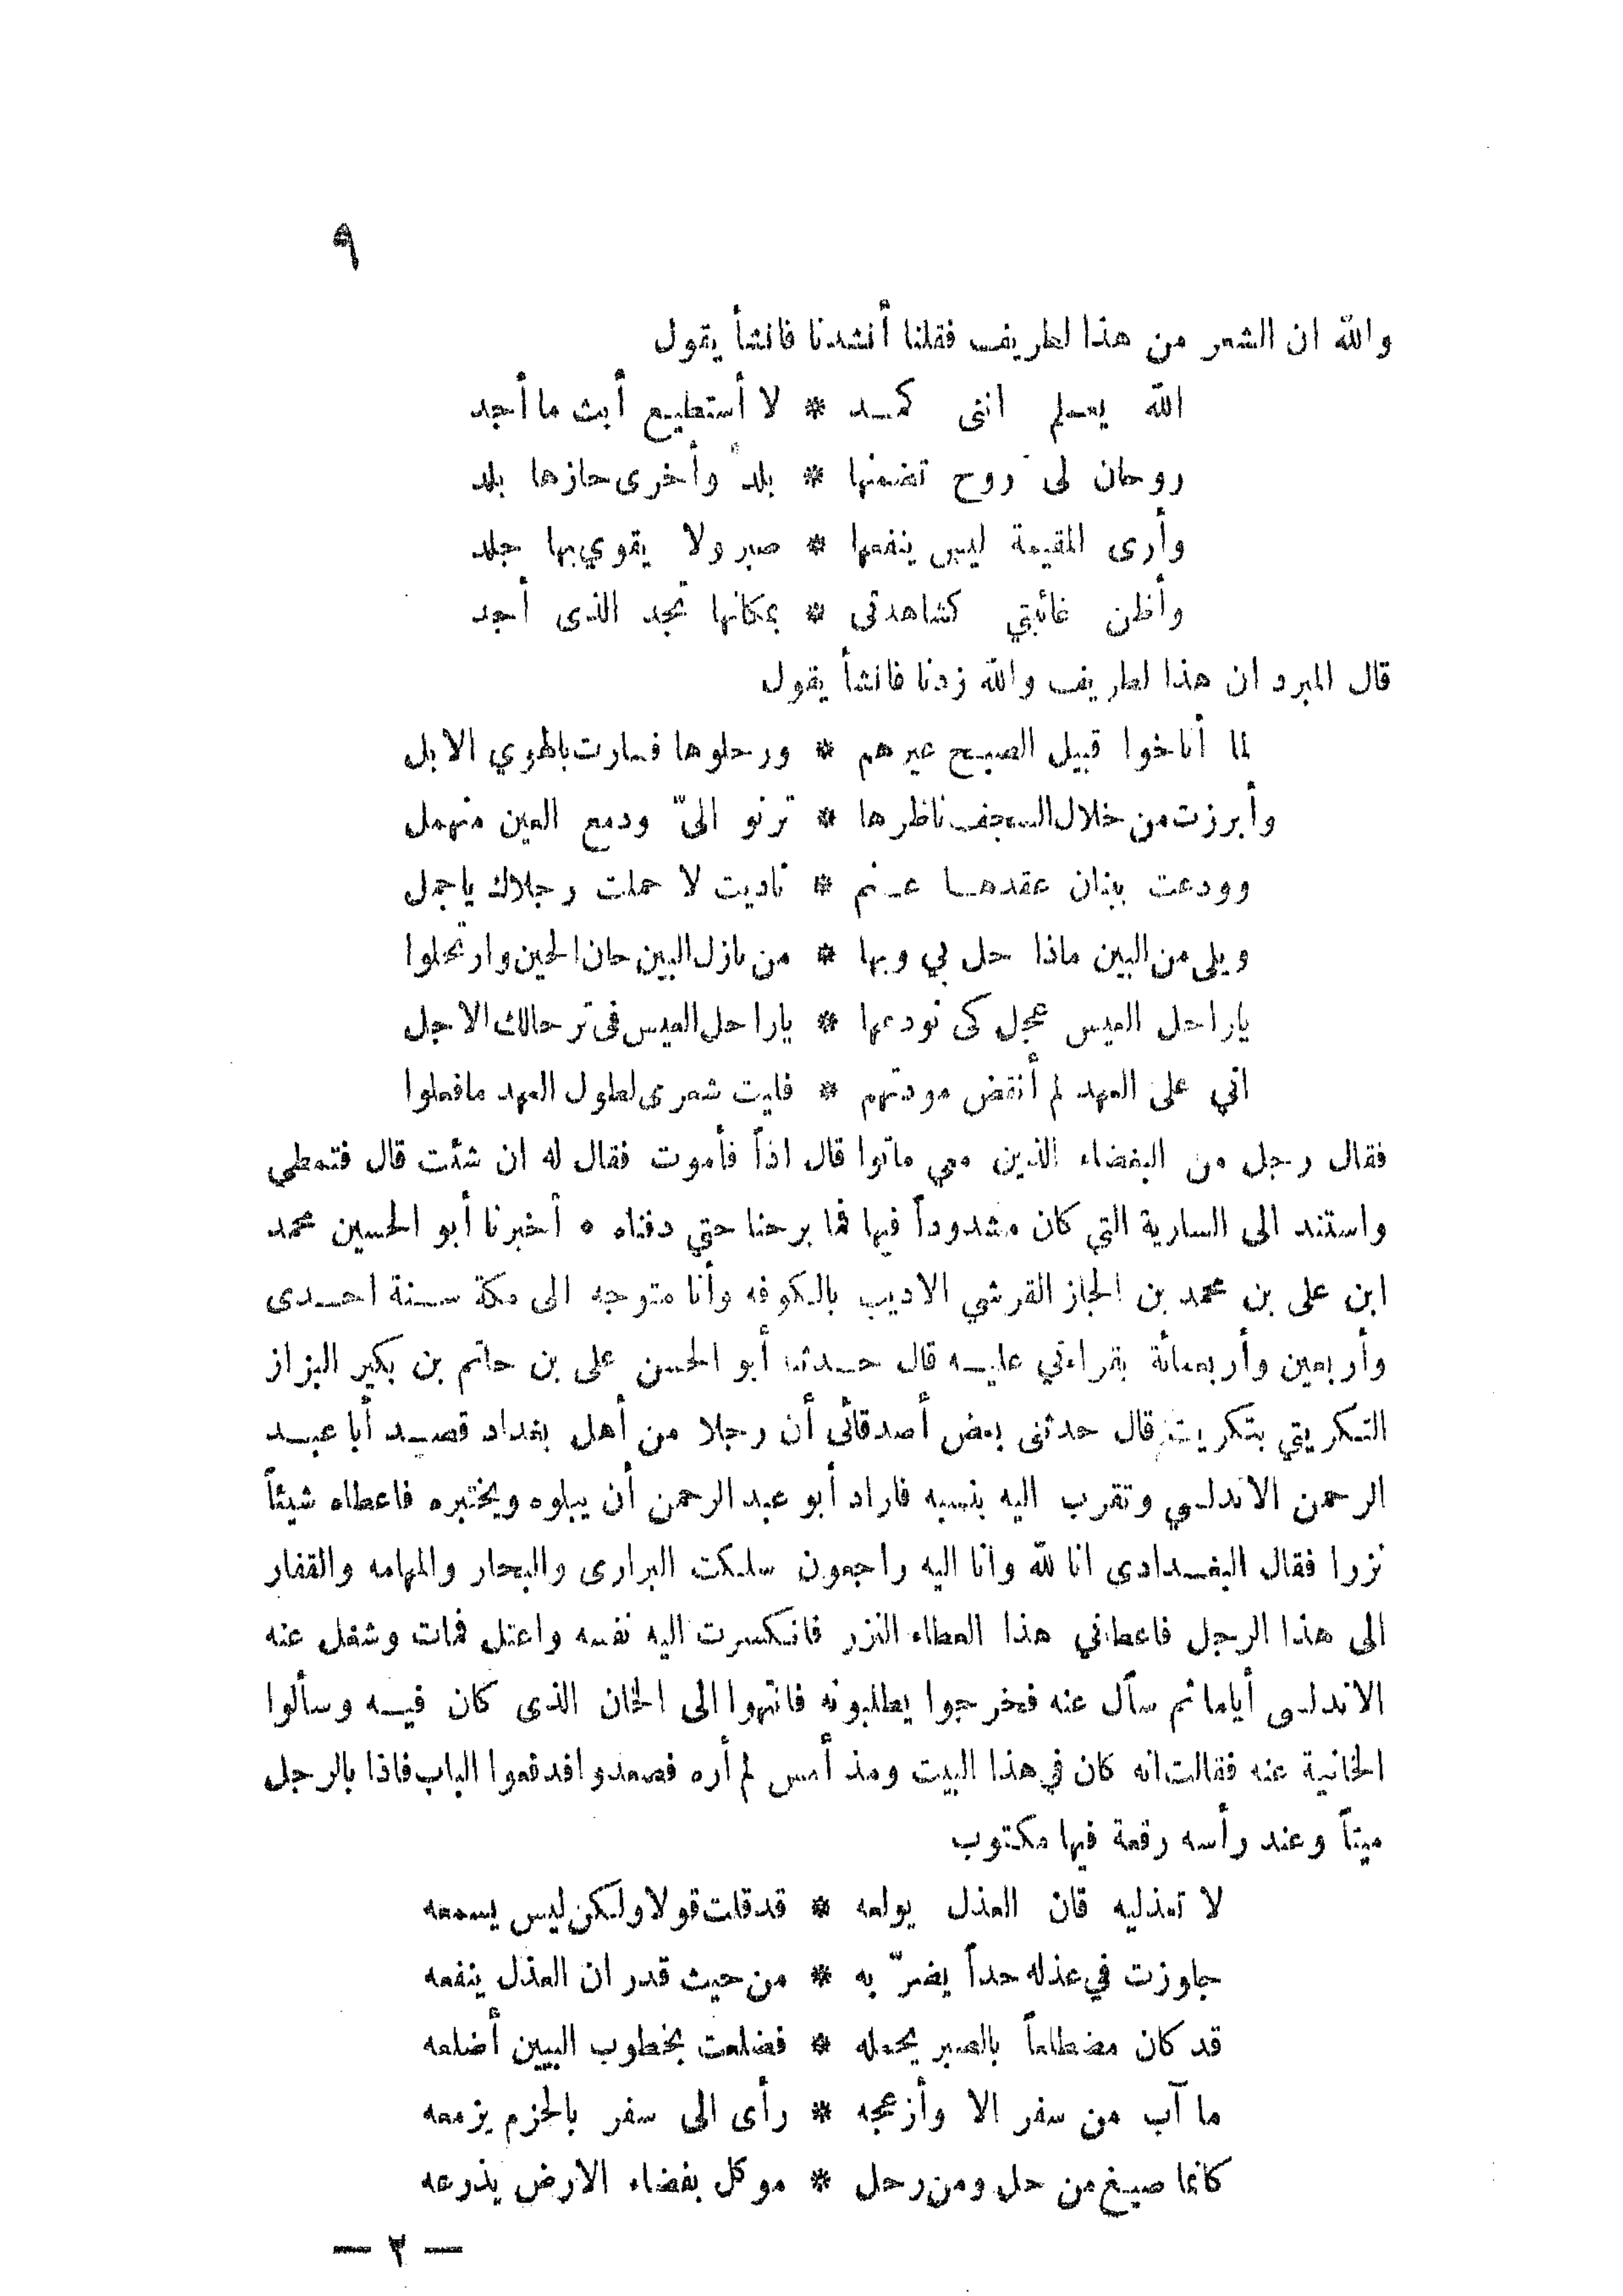 ٩
والله ان الشعر من هذا لطريف فقلنا أنشدنا فانشأ يقول
الله يعلم اننى كمد * لا أستطيع أبث ما أجد
روحان لى روح تضمنها * بلد وأخرى حازها بلد
وأرى المقيمة ليس ينفعها * صبر ولا يقوي بها جلد
وأظن غائبتي كشاهدتى * بمكانها تجد الذى أجد
قال المبرد ان هذا لطريف والله زدنا فانشأ يقول
لما أناخوا قبيل الصبح عيرهم * ورحلوها فسارت بالهوي الابل
وأبرزت من خلال السجف ناظرها * ترنو الىّ ودمع العين منهمل
وودعت ببنان عقدها عنم * ناديت لا حملت رجلاك ياجمل
ويلى من البين ماذا حل بي وبها * من نازل البين حان الحين وارتحلوا
ياراحل العيس عجل كى نودعها * ياراحل العيس فى ترحالك الاجل
اني على العهد لم أنقض مودتهم * فليت شعرى لطول العهد مافعلوا
فقال رجل من البغضاء الذين معي ماتوا قال اذاً فأموت فقال له ان شئت قال فتمطى
واستند الى السارية التي كان مشدوداً فيها فما برحنا حتي دفناه ٥ أخبرنا أبو الحسين محمد
ابن على بن محمد بن الجاز القرشي الاديب بالكوفه وأنا متوجه الى مكة سنة احدى
وأربعين وأربعمائة بقراءتي عليه قال حدثنا أبو الحسن على بن حاتم بن بكير البزاز
التكريتي بتكريت قال حدثنى بعض أصدقائى أن رجلا من أهل بغداد قصد أبا عبد
الرحمن الاندلسي وتقرب اليه بنسبه فاراد أبو عبد الرحمن أن يبلوه ويختبره فاعطاه شيئاً
نزرا فقال البغدادى انا لله وانا اليه راجعون سلكت البرارى والبحار والمهامه والقفار
الى هذا الرجل فاعطاني هذا العطاء النزر فانكسرت اليه نفسه واعتل فمات وشغل عنه
الاندلسى أياما ثم سأل عنه فخرجوا يطلبونه فانتهوا الى الخان الذى كان فيه وسألوا
الخانية عنه فقالت انه كان في هذا البيت ومذ أمس لم أره فصعدوا فدفعوا الباب فاذا بالرجل
ميتاً وعند رأسه رقعة فيها مكتوب
لا تعذليه فان العذل يولعه * قد قلت قولا ولكن ليس يسمعه
جاوزت في عذله حداً يضرّ به * من حيث قدر ان العذل ينفعه
قد كان مضطلعاً بالصبر يحمله * فضلعت بخطوب البين أضلعه
ما آب من سفر الا وأزعجه * رأى الى سفر بالحزم يزمعه
كانما صيغ من حل ومن رحل * موكل بفضاء الارض يذرعه
— ٢ —